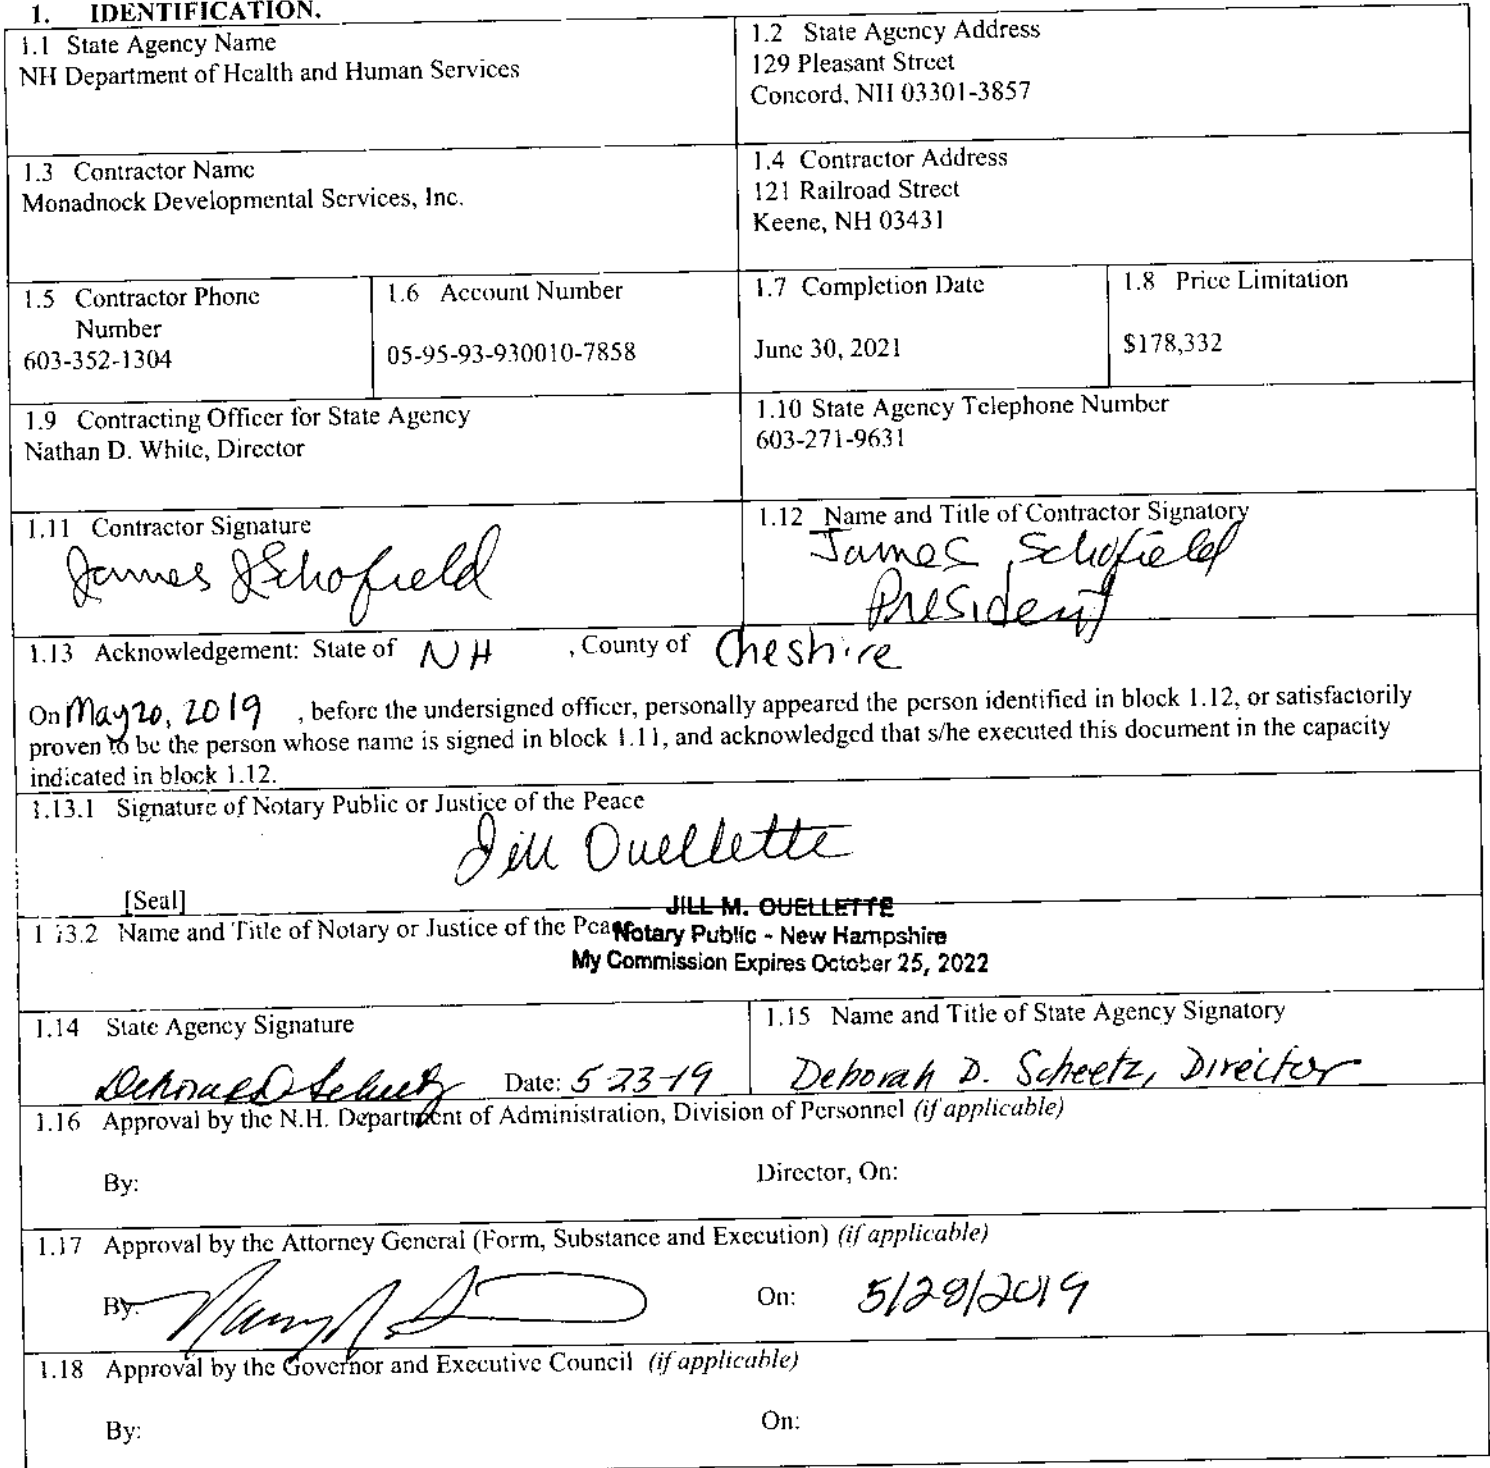 1. IDENTIFICATION.
1.1 State Agency Name
NH Department of Health and Human Services
1.2 State Agency Address
129 Pleasant Street
Concord, NH 03301-3857
1.3 Contractor Name
Monadnock Developmental Services, Inc.
1.4 Contractor Address
121 Railroad Street
Keene, NH 03431
1.5 Contractor Phone
Number
603-352-1304
1.6 Account Number
05-95-93-930010-7858
1.7 Completion Date
June 30, 2021
1.8 Price Limitation
$178,332
1.9 Contracting Officer for State Agency
Nathan D. White, Director
1.10 State Agency Telephone Number
603-271-9631
1.11 Contractor Signature
James J Schofield
1.12 Name and Title of Contractor Signatory
James Schofield
President
1.13 Acknowledgement: State of NH , County of Cheshire
On May 20, 2019 , before the undersigned officer, personally appeared the person identified in block 1.12, or satisfactorily
proven to be the person whose name is signed in block 1.11, and acknowledged that s/he executed this document in the capacity
indicated in block 1.12.
1.13.1 Signature of Notary Public or Justice of the Peace
Jill Ouellette
[Seal]
JILL M. OUELLETTE
1.13.2 Name and Title of Notary or Justice of the Peace
Notary Public - New Hampshire
My Commission Expires October 25, 2022
1.14 State Agency Signature
Deborah D Scheetz Date: 5-23-19
1.15 Name and Title of State Agency Signatory
Deborah D. Scheetz, Director
1.16 Approval by the N.H. Department of Administration, Division of Personnel (if applicable)
By: Director, On:
1.17 Approval by the Attorney General (Form, Substance and Execution) (if applicable)
By: On: 5/28/2019
1.18 Approval by the Governor and Executive Council (if applicable)
By: On: